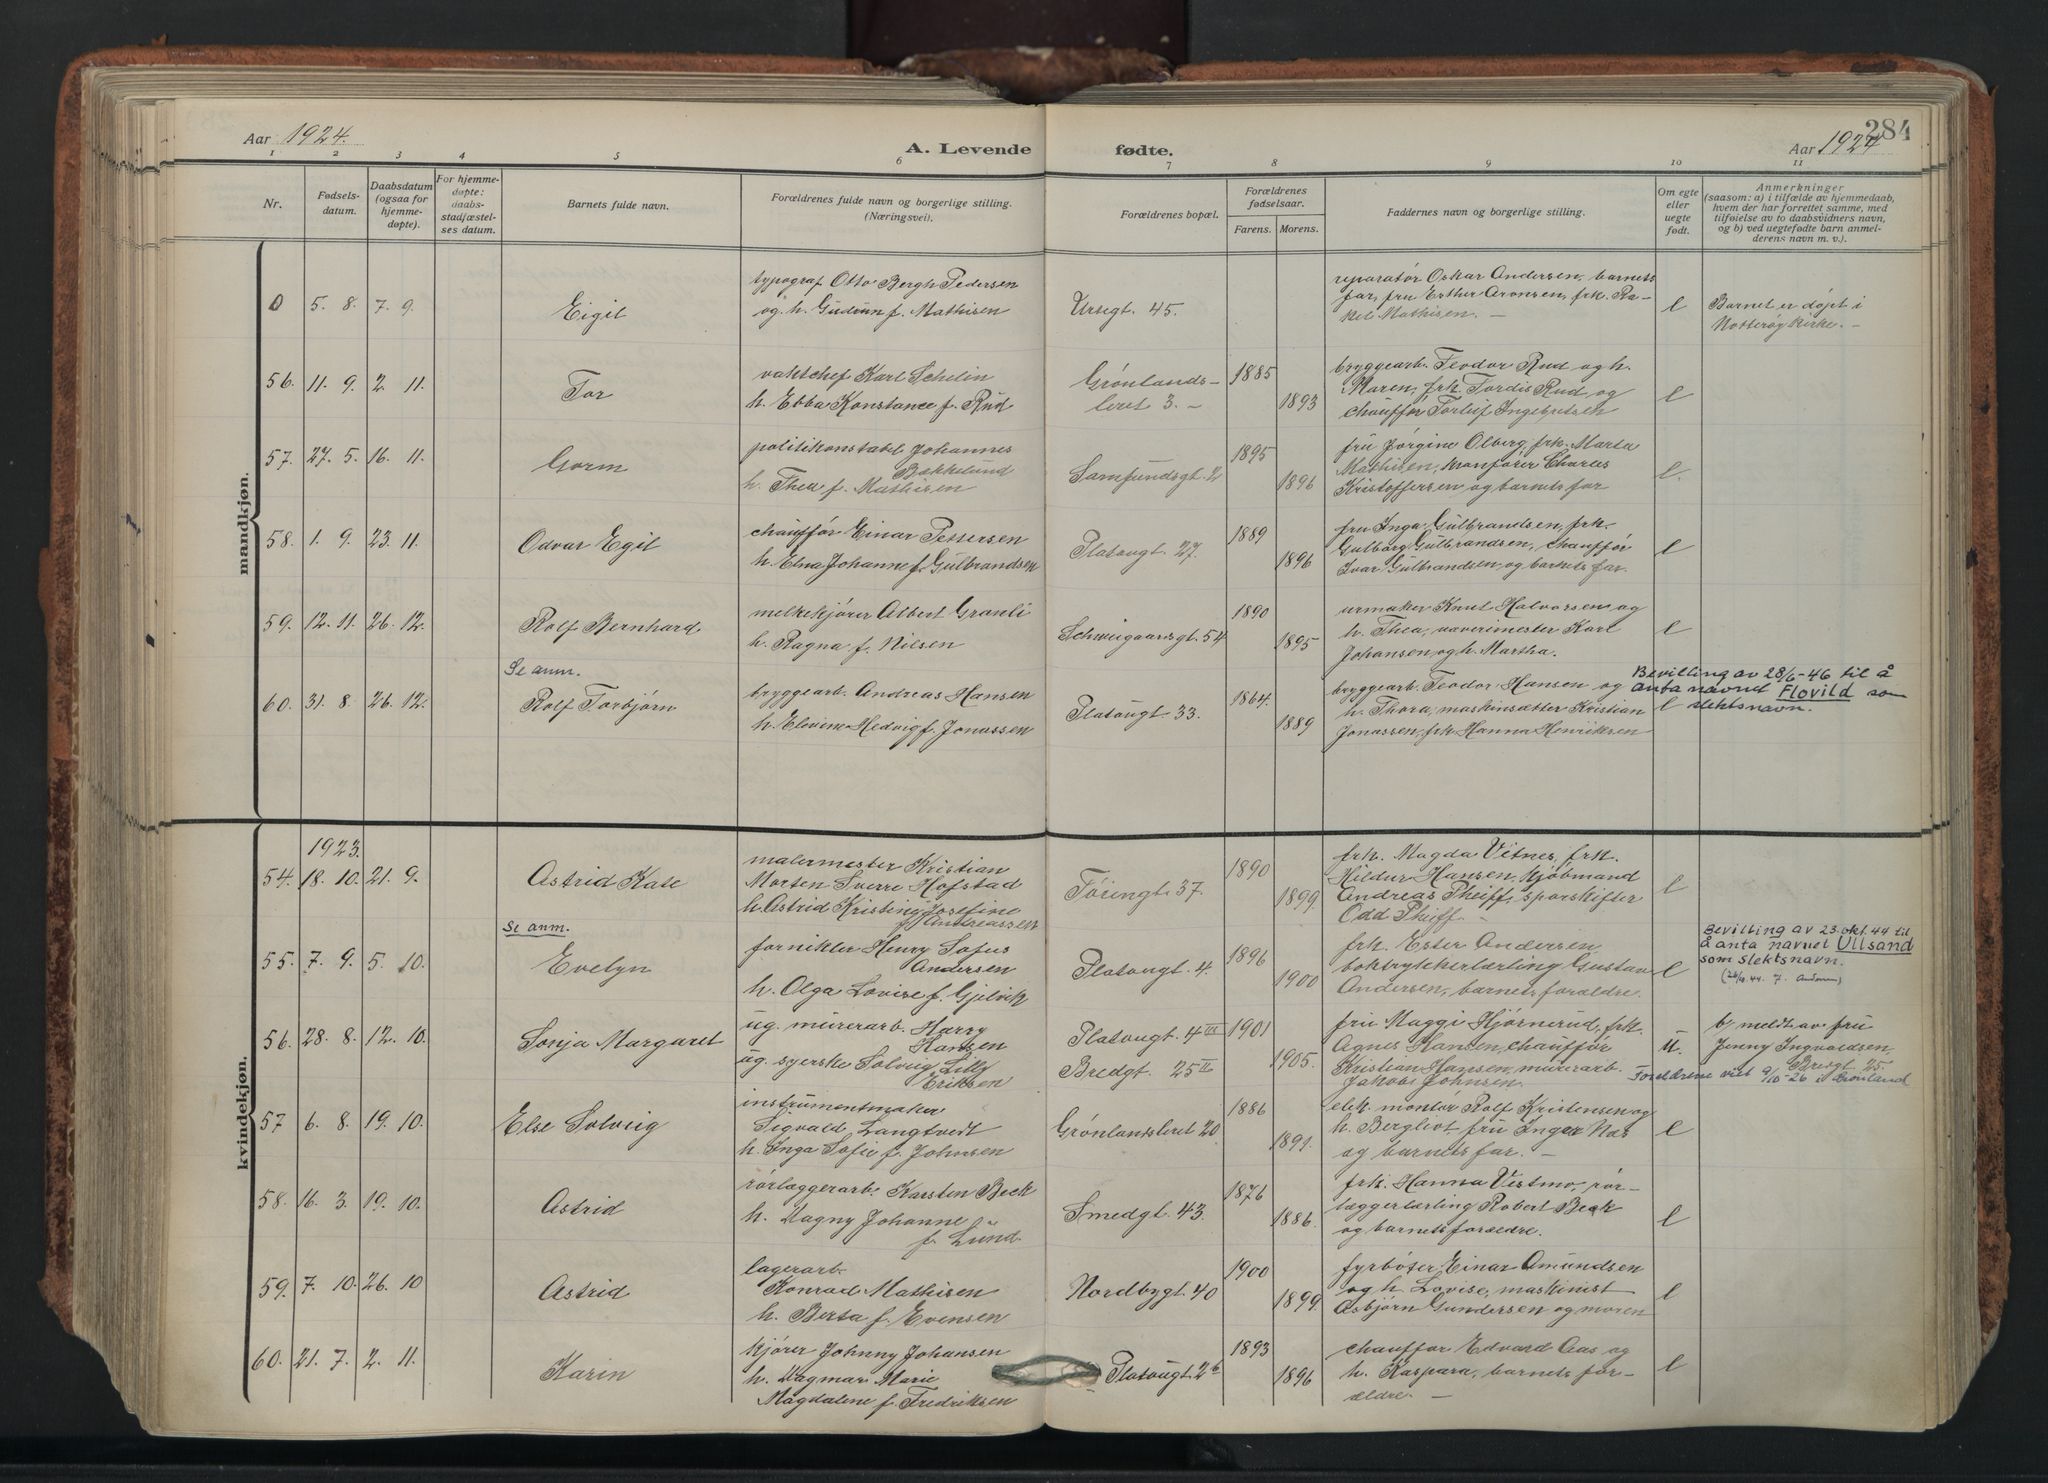 Aar 1924.
A. Levende
fødte.
284
Aar 1924
1 2 3 4 5 6 7 8 9 10 11
Nr.
Fødsels-
datum.
Daabsdatum
(ogsaa for
hjemme-
døpte).
For hjemme-
døpte:
daabs-
stadfæstel-
ses datum.
Barnets fulde navn.
Forældrenes fulde navn og borgerlige stilling.
(Næringsvei).
Forældrenes bopæl.
Forældrenes
fødselsaar.
Farens. Morens.
Faddernes navn og borgerlige stilling.
Om egte
eller
uegte
født.
Anmerkninger
(saasom: a) i tilfælde av hjemmedaab,
hvem der har forrettet samme, med
tilføielse av to daabsvidners navn,
og b) ved uegtefødte barn anmel-
derens navn m. v.).
mandkjøn.
0 5. 8. 7. 9. Eigil
typograf Otto Bergh Pedersen
og h. Gudrun f. Mathisen
Ursegt. 45.
reparatør Oskar Andersen, barnets
far, fru Esther Aronsen, frk. Ra-
kel Mathisen. –
e
Barnet er døpt i
Nøtterøy kirke. –
56. 11. 9. 2. 11. Tor
vaktchef Karl Schelin
h. Ebba Konstance f. Rud
Grønlands-
leret 3. –
1885
1893
bryggearb. Teodor Rud og h.
Maren, frk. Tordis Rud og
chauffør Torleif Ingebretsen
e
57. 27. 5. 16. 11. Gorm
politikonstabel Johannes
Bakkelund
h. Thea f. Mathisen
Samfundsgt. 2
1895
1896
fru Jørgine Olberg, frk. Marta
Mathisen, kranfører Charles
Kristoffersen og barnets far
e.
58. 1. 9. 23. 11. Odvar Egil
chauffør Einar Pettersen
h. Elna Johanne f. Gulbrandsen
Platougt. 27.
1889
1896
fru Inga Gulbrandsen, frk.
Gulborg Gulbrandsen, chauffør
Ivar Gulbrandsen, og barnets far.
e
59. 12. 11. 26. 12. Rolf Bernhard
melkekjører Albert Granli
h. Ragna f. Nilsen
Schweigaardsgt. 54
1890
1895
urmaker Knut Halvorsen og
h. Thea, vaverimester Karl
Johansen, og h. Martha.
e
Se anm.
60. 31. 8. 26. 12. Rolf Torbjørn
bryggearb. Andreas Hansen
h. Elovine Hedvig f. Jonassen
Platougt. 33.
1864.
1889
bryggearb. Teodor Hansen og
h. Thora, maskinsætter Kristian
Jonassen, frk. Hanna Henriksen
e
Bevilling av 28/6-46 til å
anta navnet Flovild som
slektsnavn.
kvindekjøn.
1923.
54. 18. 10. 21. 9. Astrid Kate
malermester Kristian
Morten Sverre Hofstad
h. Astrid Kristing Josefine
f. Andreassen
Tøiengt. 37.
1890
1899.
frk. Magda Vitnes, frk.
Hildur Hansen, kjøbmand
Andreas Pheiff, sporskifter
Odd Pheiff. –
e
Se anm.
55. 7. 9. 5. 10. Evelyn
fornikler Henry Sofus
Andersen
h. Olga Lovise f. Gjelvik
Platougt. 4.
1896
1900
frk. Ester Andersen
boktrykkerlærling Gustav
Andersen, barnets forældre.
e
Bevilling av 23. okt. 44 til
å anta navnet Ullsand
som slektsnavn.
56. 28. 8. 12. 10. Sonja Margaret
ug. murerarb. Harry
Hansen
ug. syerske Solveig Lilly
Eriksen
Platougt. 4 III
Bredgt. 25 II
1901
1905.
fru Maggi Hjørnerud, frk.
Agnes Hansen, chauffør
Kristian Hansen, murerarb.
Jakob Johnsen.
u.
b/ meldt av fru
Jenny Ingvaldsen,
Bredgt 25.
Foreldrene viet 9/10-26 i Grønland
57 6. 8. 19. 10. Else Solveig
instrumentmaker
Sigvald Langtvedt
h. Inga Sofie f. Johnsen
Grønlandsleret 20
1886
1891.
elek. montør Rolf Kristensen og
h. Bergliot, fru Inger Næs
og barnets far. –
e
58. 16. 3. 19. 10. Astrid
rørlæggerarb. Karsten Beck
h. Dagny Johanne
f. Lund.
Smedgt. 43.
1876
1886.
frk. Hanna Vestmo, rør-
læggerlærling Robert Beck
og barnets forældre.
e
59. 7. 10. 26. 10 Astrid
lagerarb.
Konrad Mathisen
h. Berta f. Evensen
Nordbygt. 40
1900
1899.
fyrbøter Einar Amundsen
og h. Lovise, maskinist
Asbjørn Gundersen og moren
e
60. 21. 7. 2. 11. Karin
kjører Johnny Johansen
h. Dagmar Marie
Magdalene f. Fredriksen
Platougt. 2b
1893
1896
chauffør Edvard Aas og
h. Kaspara, barnets for-
ældre. –
e